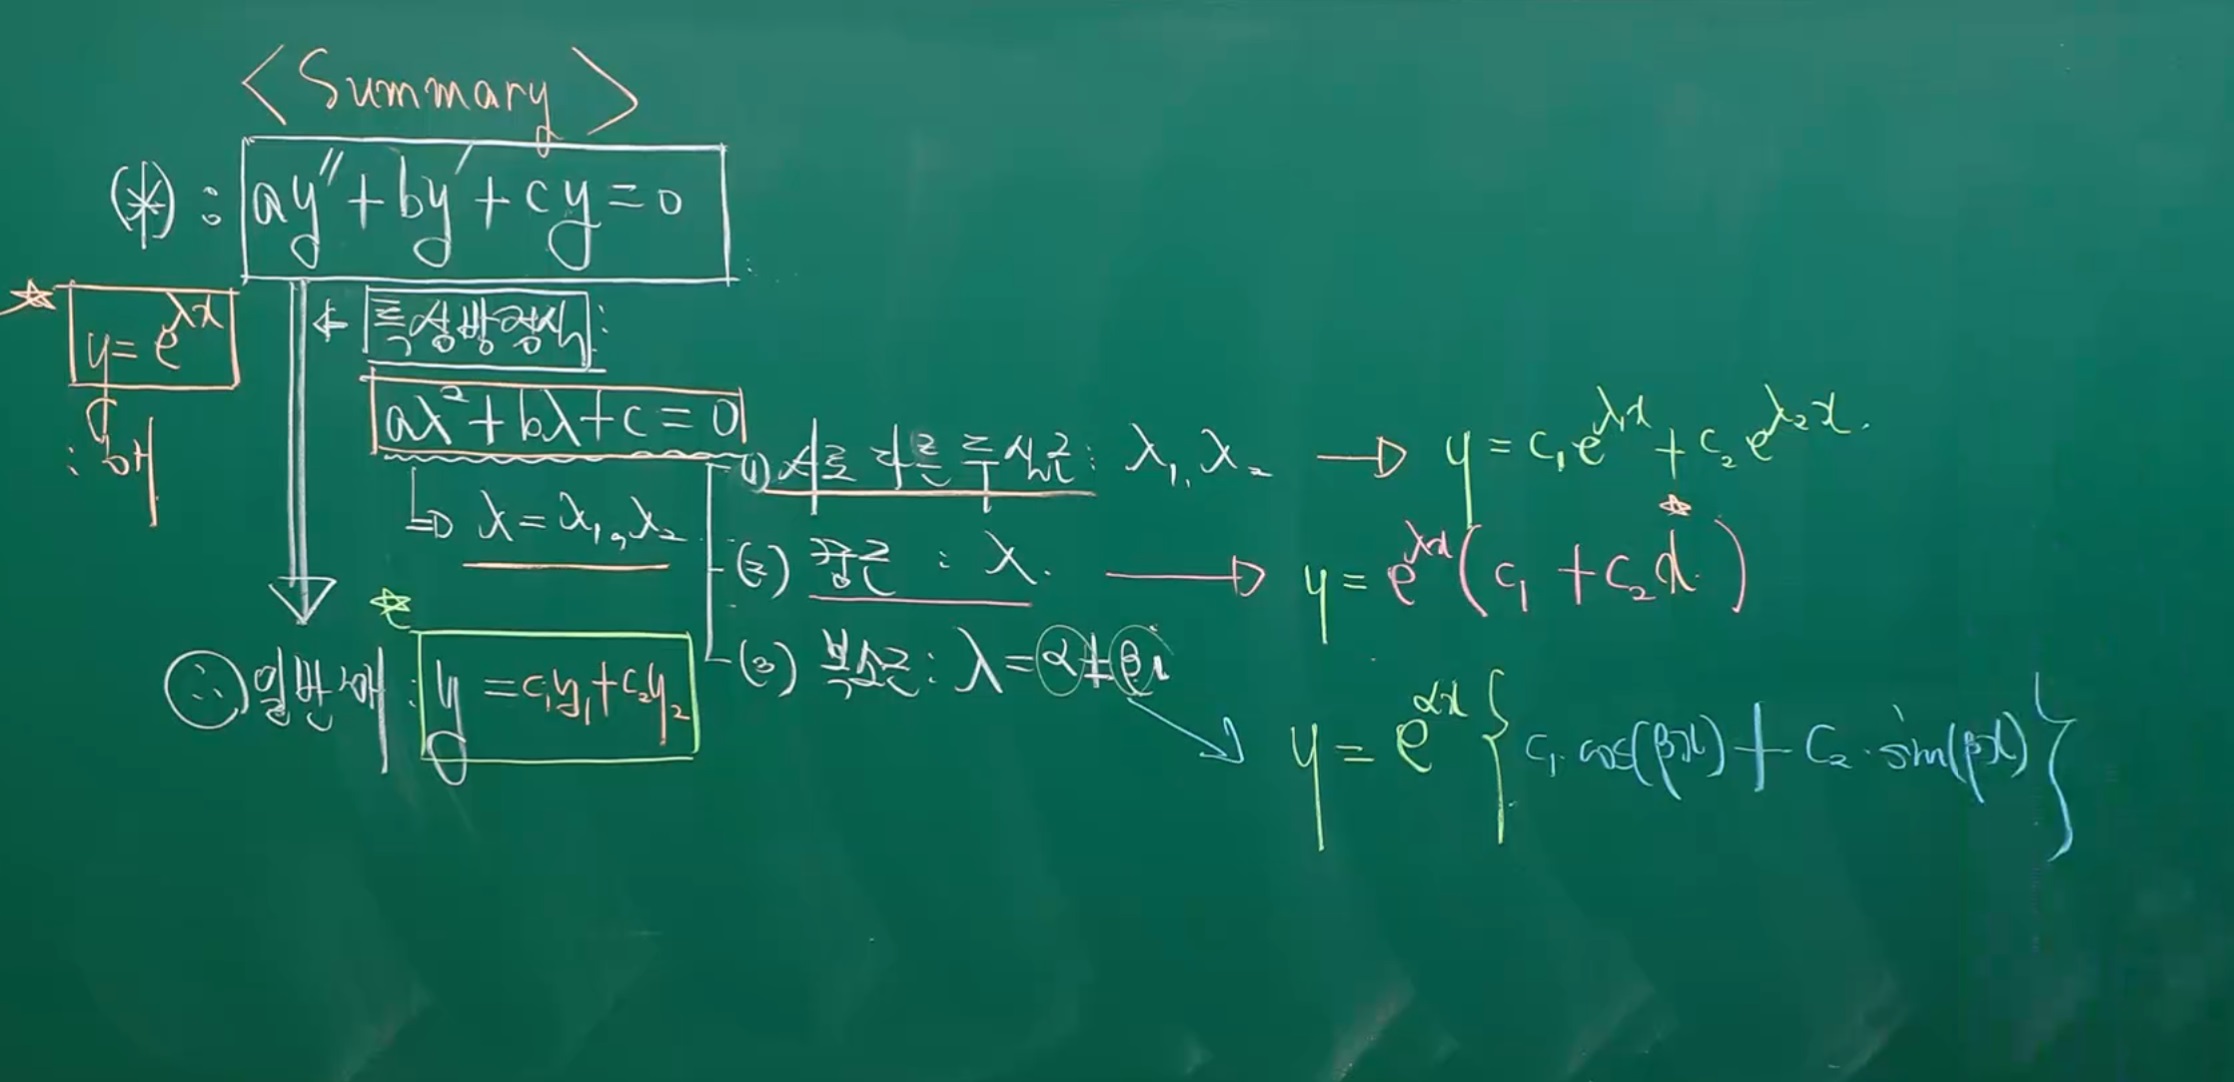 <Summary>
(*) : ay″ + by′ + cy = 0
y = e^{λx}
: 해
← 특성방정식 :
aλ² + bλ + c = 0
⇒ λ = λ₁, λ₂
(1) 서로 다른 두 실근 : λ₁, λ₂ → y = c₁e^{λ₁x} + c₂e^{λ₂x}.
(2) 중근 : λ. → y = e^{λx}(c₁ + c₂x)
(3) 복소근 : λ = α ± βi
→ y = e^{αx}{c₁·cos(βx) + c₂·sin(βx)}
∴ 일반해 : y = c₁y₁ + c₂y₂